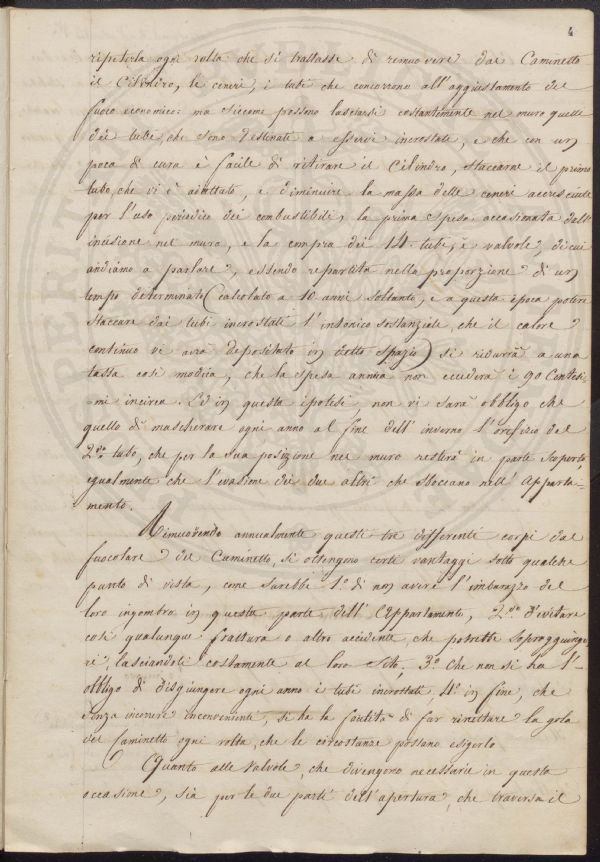 4
ripeterla ogni volta che si trattasse di remuovere dal Caminetto
il Cilindro, le ceneri, i tubi che concorrono all'aggiustamento del
fuoco economico: ma siccome possono lasciarsi costantemente nel muro quelle
dei tubi, che sono destinate a esservi incrostate, e che con un
poca di cura è facile di ritirare il Cilindro, staccarne il primo
tubo, che vi è adattato, e diminuire la massa delle ceneri accresciute
per l'uso periodico dei combustibili, la prima spesa occasionata dall'
incisione nel muro, e la compra dei 14 tubi, e valvole, di cui
andiamo a parlare, essendo repartita nella proporzione di un
tempo determinato (calcolato a 10 anni soltanto, e a questa epoca potere
staccare dai tubi incrostati l'intonico sostanziale, che il calore
continuo vi avrà depositato in detto spazio) si ridurrà a una
tassa così modica, che la spesa annua non eccederà i 90 Centesi-
mi incirca. Ed in questa ipotesi, non vi sarà obbligo che
quello di mascherare ogni anno al fine dell'inverno l'orifizio del
2.do tubo, che per la sua posizione nel muro resterà in parte scoperto,
egualmente che l'evasione dei due altri che sboccano nell'Apparta-
mento.
Rimuovendo annualmente questi tre differenti corpi dal
fuocolare del Caminetto, si ottengono certi vantaggi sotto qualche
punto di vista, come sarebbe 1.o di non avere l'imbarazzo del
loro ingombro in questa parte dell'Appartamento, 2.do d'evitare
così qualunque frattura o altro accidente che potrebbe sopraggiunge-
re, lasciandoli costamente al loro sito, 3.o Che non si ha l'-
obbligo di disgiungere ogni anno i tubi incrostati 4.o in fine, che
senza incorrere inconvenienti, si ha la facilità di far rinettare la gola
del Caminetto ogni volta, che le circostanze possano esigerlo
Quanto alle Valvole, che divengono necessarie in questa
occasione, sia per le due parti dell'apertura, che traversa il